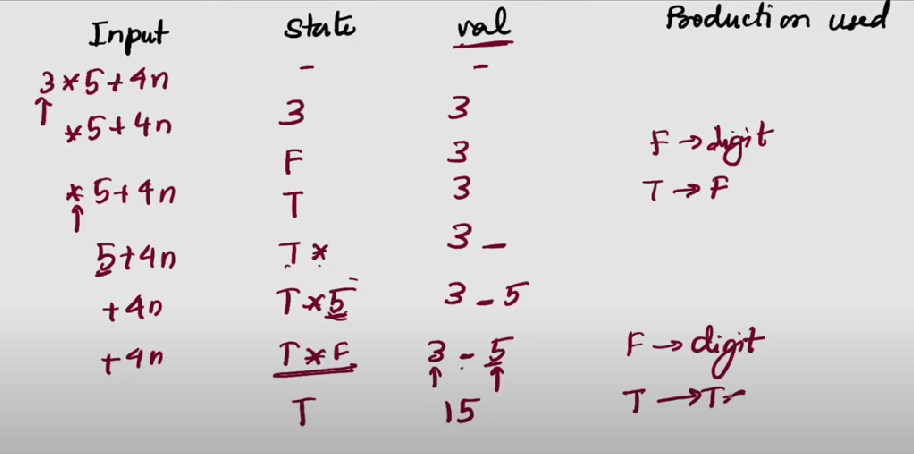 Input State val Production used
3*5+4n - -
*5+4n 3 3
F 3 F → digit
*5+4n T 3 T → F
5+4n T* 3 -
+4n T*5 3 - 5
+4n T*F 3 - 5 F → digit
T 15 T → T*